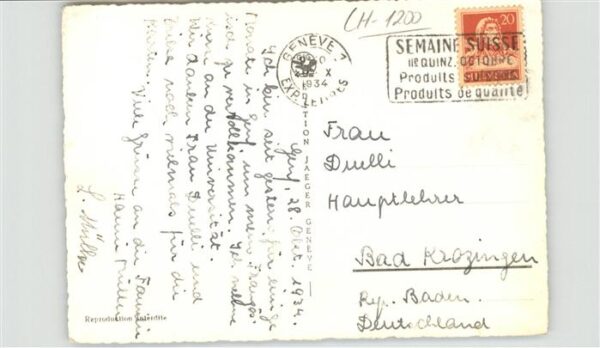 CH-1200
GENÈVE 1
X
1934
EXP. LETTRES
SEMAINE SUISSE
IIe QUINZ. OCTOBRE
Produits
Produits de qualité
20
HELVETIA
Genf, 28. Okt. 1934.
Ich bin seit gestern für einige
Monate in Genf um mein Französ
isch zu vervollkommnen. Ich nehme
an der Universität.
Wir danken Frau Duelli und
noch vielmals für die
Karten. Viele Grüsse an die Familie
Hanni Müller
L. Müller
EDITION JAEGER GENÈVE
Reproduction interdite
Frau
Duelli
Hauptlehrer
Bad Krozingen
Rep. Baden.
Deutschland